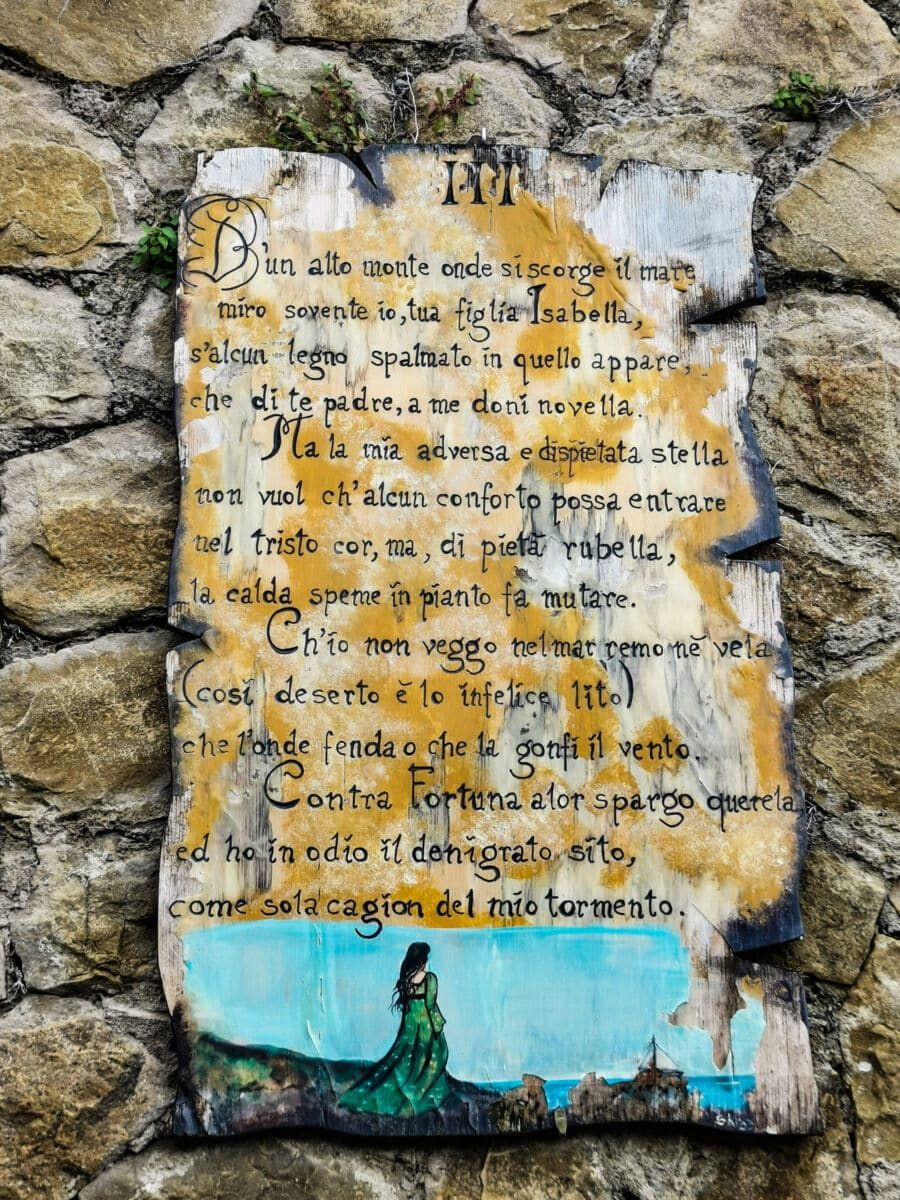 III
D'un alto monte onde si scorge il mare
miro sovente io, tua figlia Isabella,
s'alcun legno spalmato in quello appare,
che di te padre, a me doni novella.
Ma la mia adversa e dispietata stella
non vuol ch'alcun conforto possa entrare
nel tristo cor, ma, di pietà rubella,
la calda speme in pianto fa mutare.
Ch'io non veggo nel mar remo nè vela
(così deserto è lo infelice lito)
che l'onde fenda o che la gonfi il vento.
Contra Fortuna alor spargo querela
ed ho in odio il denigrato sito,
come sola cagion del mio tormento.